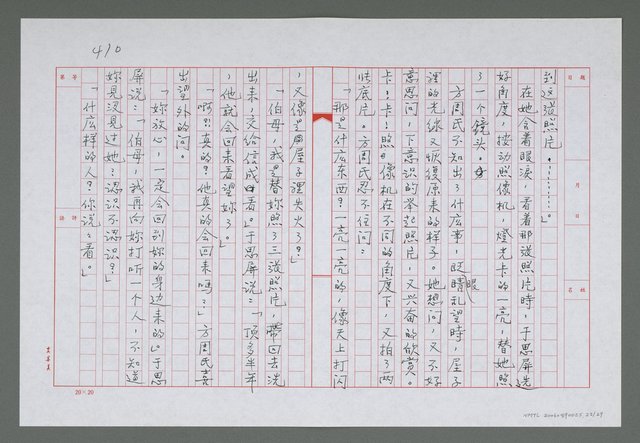 410
到这張照片………。」
在她含着眼淚，看着那張照片時，于思屏选
好角度，按动照像机，燈光卡的一亮，替她照
了一个鏡头。
方周氏不知出了什広事，眨眼
睛乱望時，屋子
裡的光線又恢復原来的样子。她想问，又不好
意思问，下意识的举起照片，又兴奋的欣賞。
卡！卡！照像机在不同的角度下，又拍了两
張底片。方周氏忍不住问：
「那是什広东西？一亮一亮的，像天上打闪
，又像是屋子裡失火了？」
「伯母，我是替妳照了三張照片，帶回去洗
出来，交给信成看。」于思屏说：「頂多半年
，他就会回来看望妳了。」
「啊！真的？他真的会回来嗎？」方周氏喜
出望外的问。
「妳放心，一定会回到妳的身边来的。」于思
屏说：「伯母，我再向妳打听一个人，不知道
妳見没見过她？認识不認识？」
「什広样的人？你说说看。」
題目
月
日
姓名
等第
評語
20×20